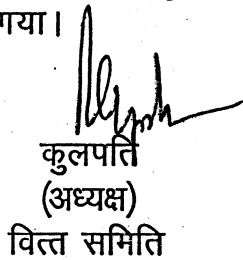 गया।
कुलपति
(अध्यक्ष)
वित्त समिति